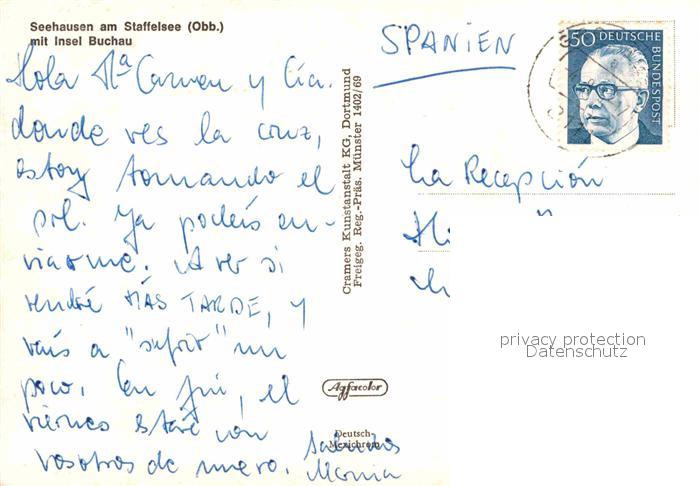 Seehausen am Staffelsee (Obb.)
mit Insel Buchau
Hola Mª Carmen y Cía.
donde ves la cruz,
estoy tomando el
sol. Ya podéis en-
viarme. A ver si
vendré MÁS TARDE, y
vais a "sufrir" un
poco. En fin, el
viernes estaré con
vosotros de nuevo.
Saludos
Cramers Kunstanstalt KG. Dortmund
Freigeg. Reg.-Präs. Münster 1402/69
Agfacolor
Deutsch-
Mexichrom
SPANIEN
50 DEUTSCHE
BUNDESPOST
La Recepción
privacy protection
Datenschutz